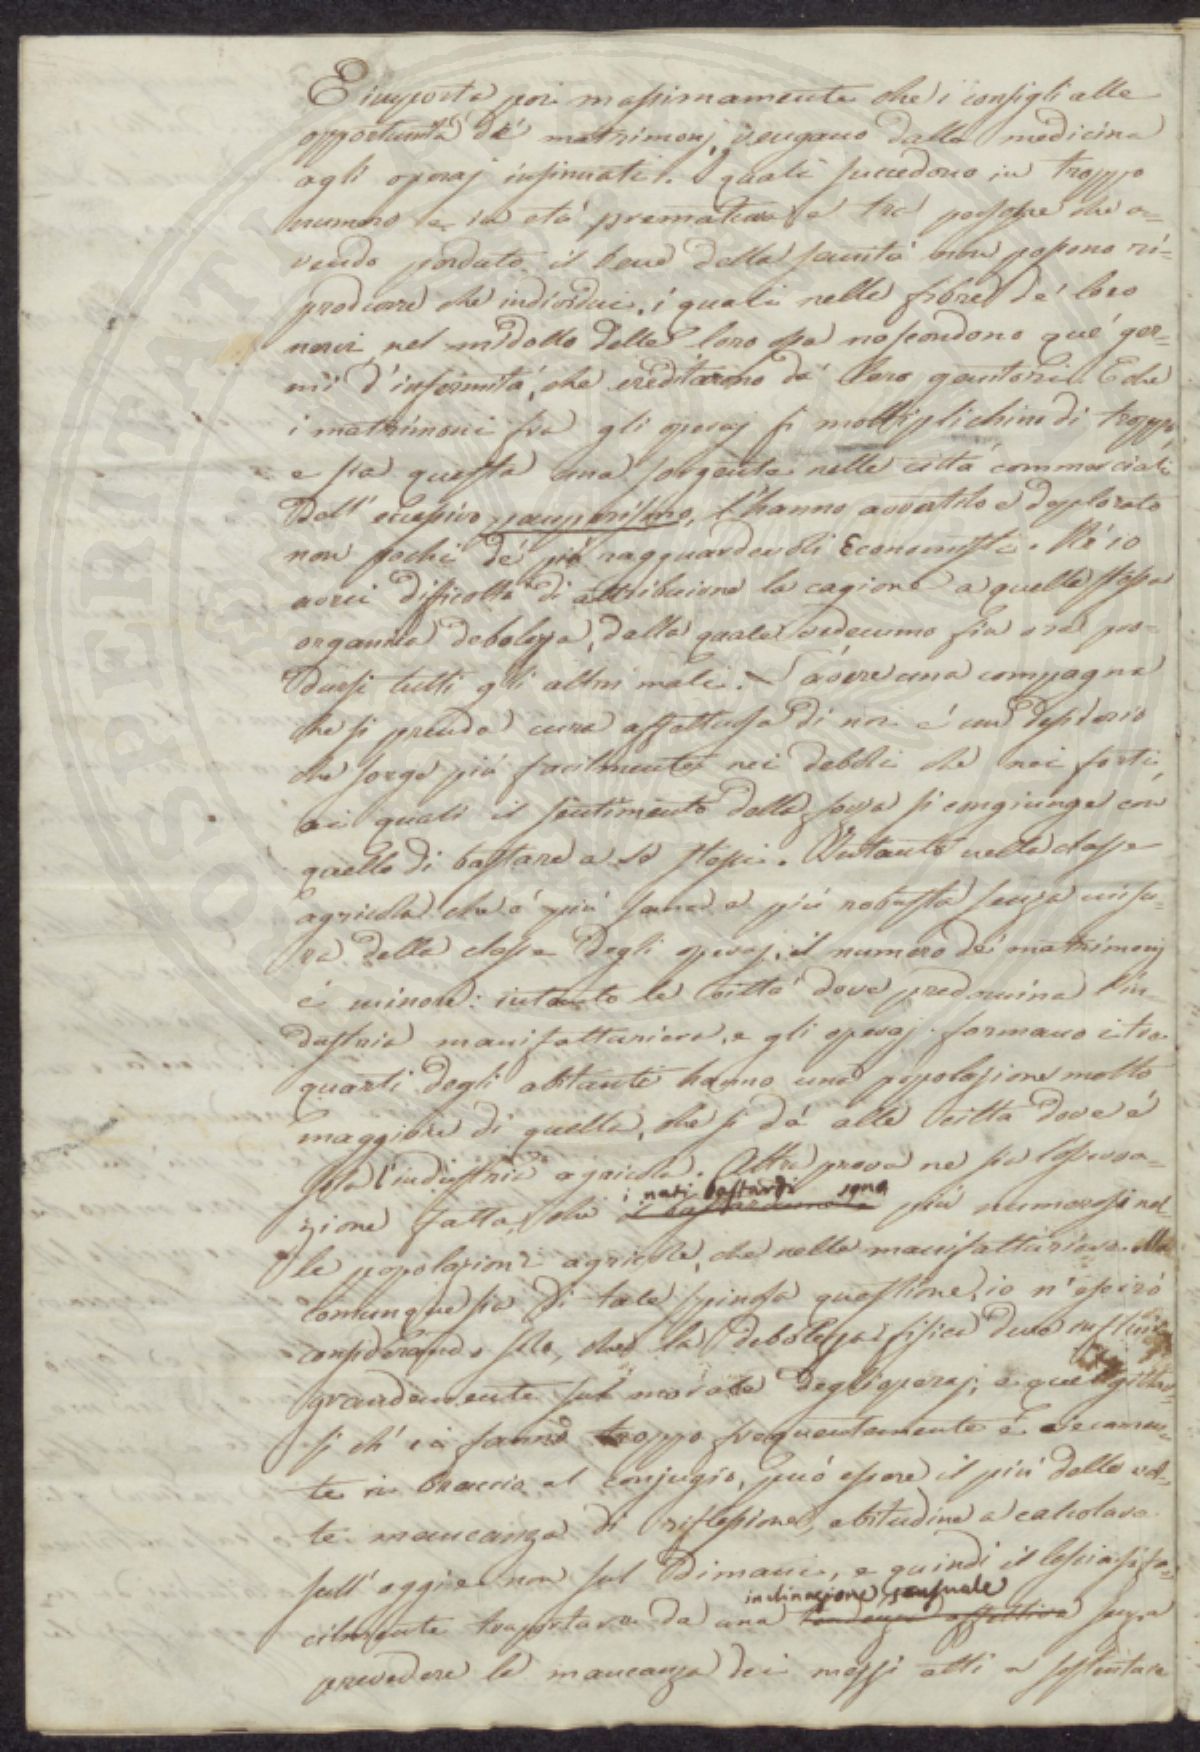 E importa poi massimamente che i consigli alle
opportunità de' matrimonj vengano dalla medicina
agli operaj insinuati. I quali succedono in troppo
numero e in età prematura e tra persone che a-
vendo perduto il bene della sanità non possono ri-
produrre che individui, i quali nelle fibre de' loro
nervi, nel midollo delle loro ossa nascondono que' ger-
mi d'infermità, che ereditarono da' loro genitori. E che
i matrimoni fra gli operaj si moltiplichino di troppo,
e sia questa una sorgente nelle città commerciali
dell' eccessivo pauperismo, l'hanno avvertito e deplorato
non pochi de' più ragguardevoli Economisti. Nè io
avrei difficoltà di attribuirne la cagione a quella stessa
organica debolezza, dalla quale vedemmo fin ora pro-
dursi tutti gli altri mali. L'avere una compagna
che si prenda cura affettuosa di noi è un desiderio
che sorge più facilmente nei deboli che nei forti,
ai quali il sentimento della forza si congiunge con
quello di bastare a se stessi. Intanto nella classe
agricola che è più sana e più robusta senza misu-
ra della classe degli operaj, il numero de' matrimonj
è minore: intanto le città dove predomina l'in-
dustria manifatturiera, e gli operaj formano i tre
quarti degli abitanti hanno una popolazione molto
maggiore di quella, che si dà alle città dove è
sola l'industria agricola. Altra prova ne sia l'osserva-
zione fatta, che i nati bastardi sono più numerosi nel-
le popolazioni agricole, che nelle manifatturiere. Ma
comunque sia di tale spinosa questione, io n'uscirò
considerando solo, che la debolezza fisica deve influire
grandemente sul morale degli operaj; e quel gittar-
si ch' ei fanno troppo frequentemente e ciecamen-
te in braccio al conjugio, può essere il più delle vol-
te mancanza di riflessione, abitudine a calcolare
sull' oggi e non sul dimani, e quindi il lasciarsi fa-
cilmente trasportare da una inclinazione sensuale senza
prevedere la mancanza dei mezzi atti a sostentare